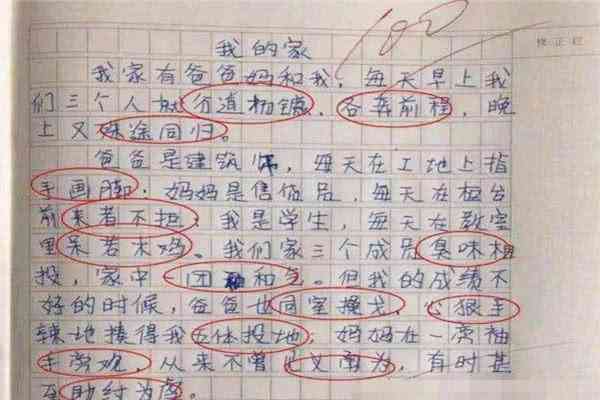 100
修正栏
我的家
我家有爸爸妈和我，每天早上我
们三个人就分道扬镳，各奔前程，晚
上又殊途同归。
爸爸是建筑师，每天在工地上指
手画脚，妈妈是售货员，每天在柜台
前来者不拒，我是学生，每天在教室
里呆若木鸡。我们家三个成员臭味相
投，家中团和气。但我的成绩不
好的时候，爸爸也同室操戈，心狠手
辣地揍得我五体投地，妈妈在一旁袖
手旁观，从来不曾见义勇为，有时甚
至助纣为虐。